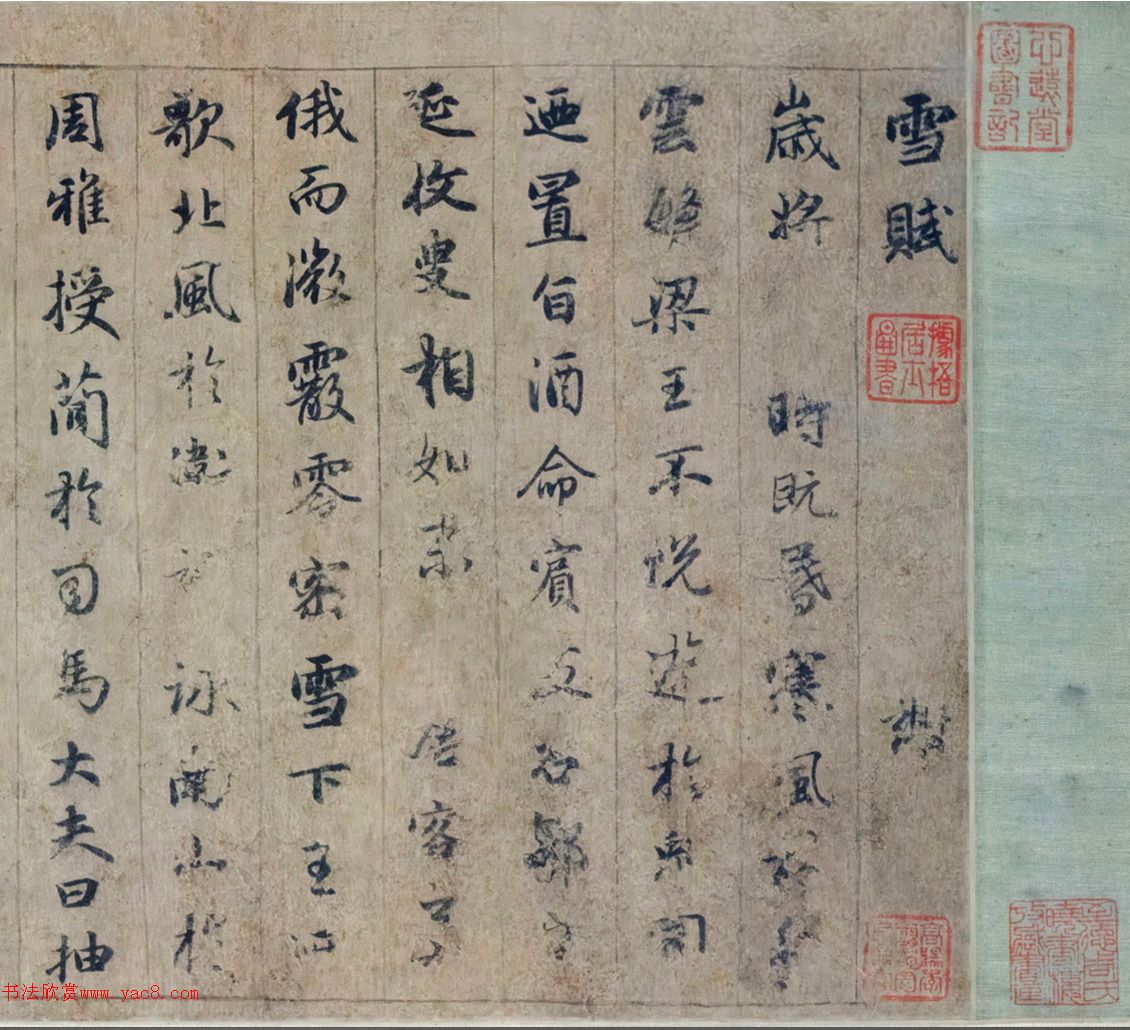 雪賦
歲將時既昬寒風積愁
雲繁梁王不悅遊於兔園
迺置旨酒命賓友召鄒生
延枚叟相如末居客之右
俄而微霰零密雪下王迺
歌北風於衛詩詠南山於
周雅授簡於司馬大夫曰抽
书法欣赏www.yac8.com